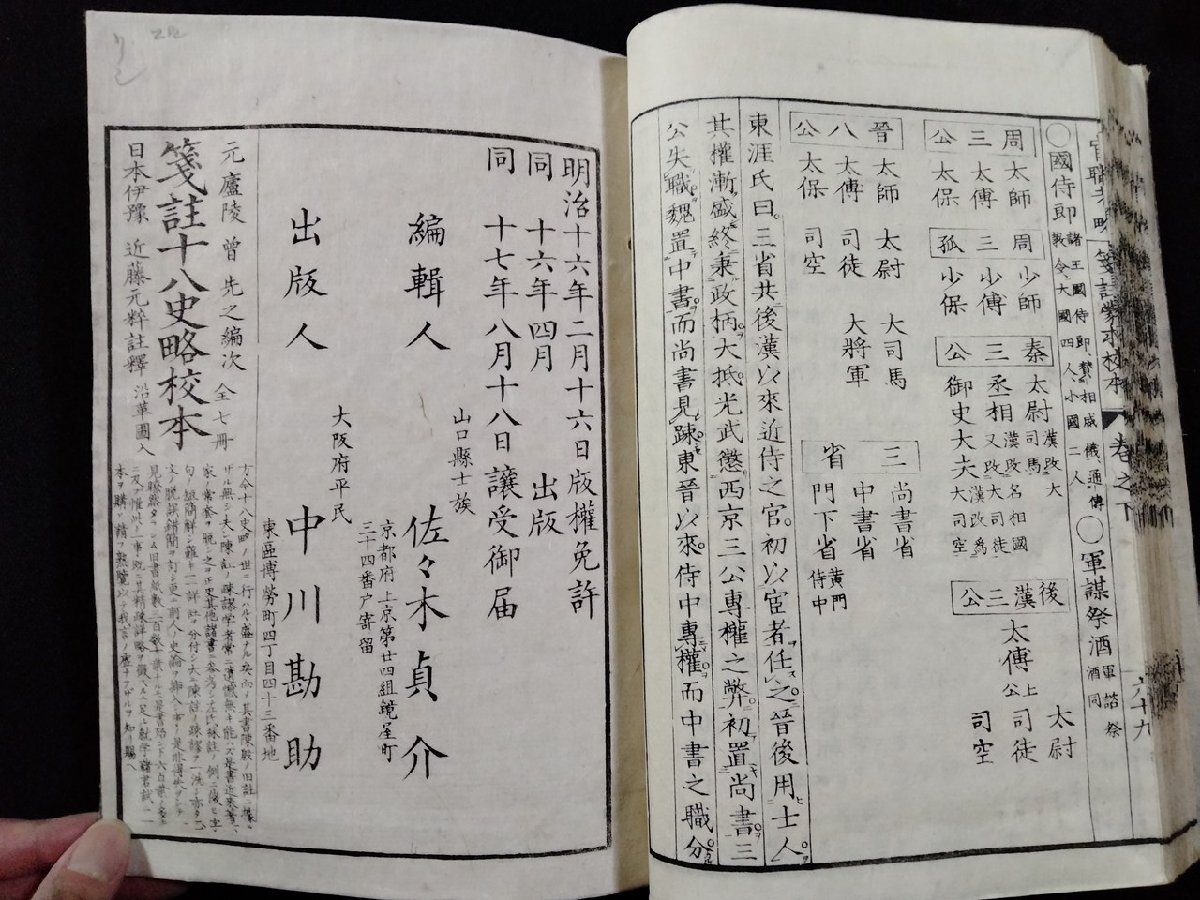 官職考略 箋註蒙求校本 卷之下 六十九
○國侍郎 諸王國侍郎、贊相威儀、通傳
教令、大國四人、小國二人 ○軍謀祭酒 軍諮祭
酒同
周三公 太師 太傅 太保
周三孤 少師 少傅 少保
秦三公 太尉 漢改大司馬 丞相 漢改名相國又改大司徒 御史大夫 漢改爲大司空
後漢三公 太傅 上公 太尉 司徒 司空
晉八公 太師 太傅 太保 太尉 司徒 司空 大司馬 大將軍
三省 尚書省 中書省 門下省 黄門侍中
東涯氏曰。三省共後漢以來近侍之官。初以宦者任之。晉後用士人。
其權漸盛。終秉政柄。大抵光武懲西京三公專權之弊。初置尚書。三
公失職。魏置中書。而尚書見疎。東晉以來。侍中專權。而中書之職分。
明治十六年二月十六日版權免許
同 十六年四月 出版
同 十七年八月十八日讓受御届
編輯人 山口縣士族 佐々木貞介
京都府上京第廿四組鏡屋町
三十四番戸寄留
出版人 大阪府平民 中川勘助
東區博勞町四丁目四十三番地
元廬陵 曾先之編次 全七冊
箋註十八史略校本
日本伊豫 近藤元粹註釋 沿革圖入